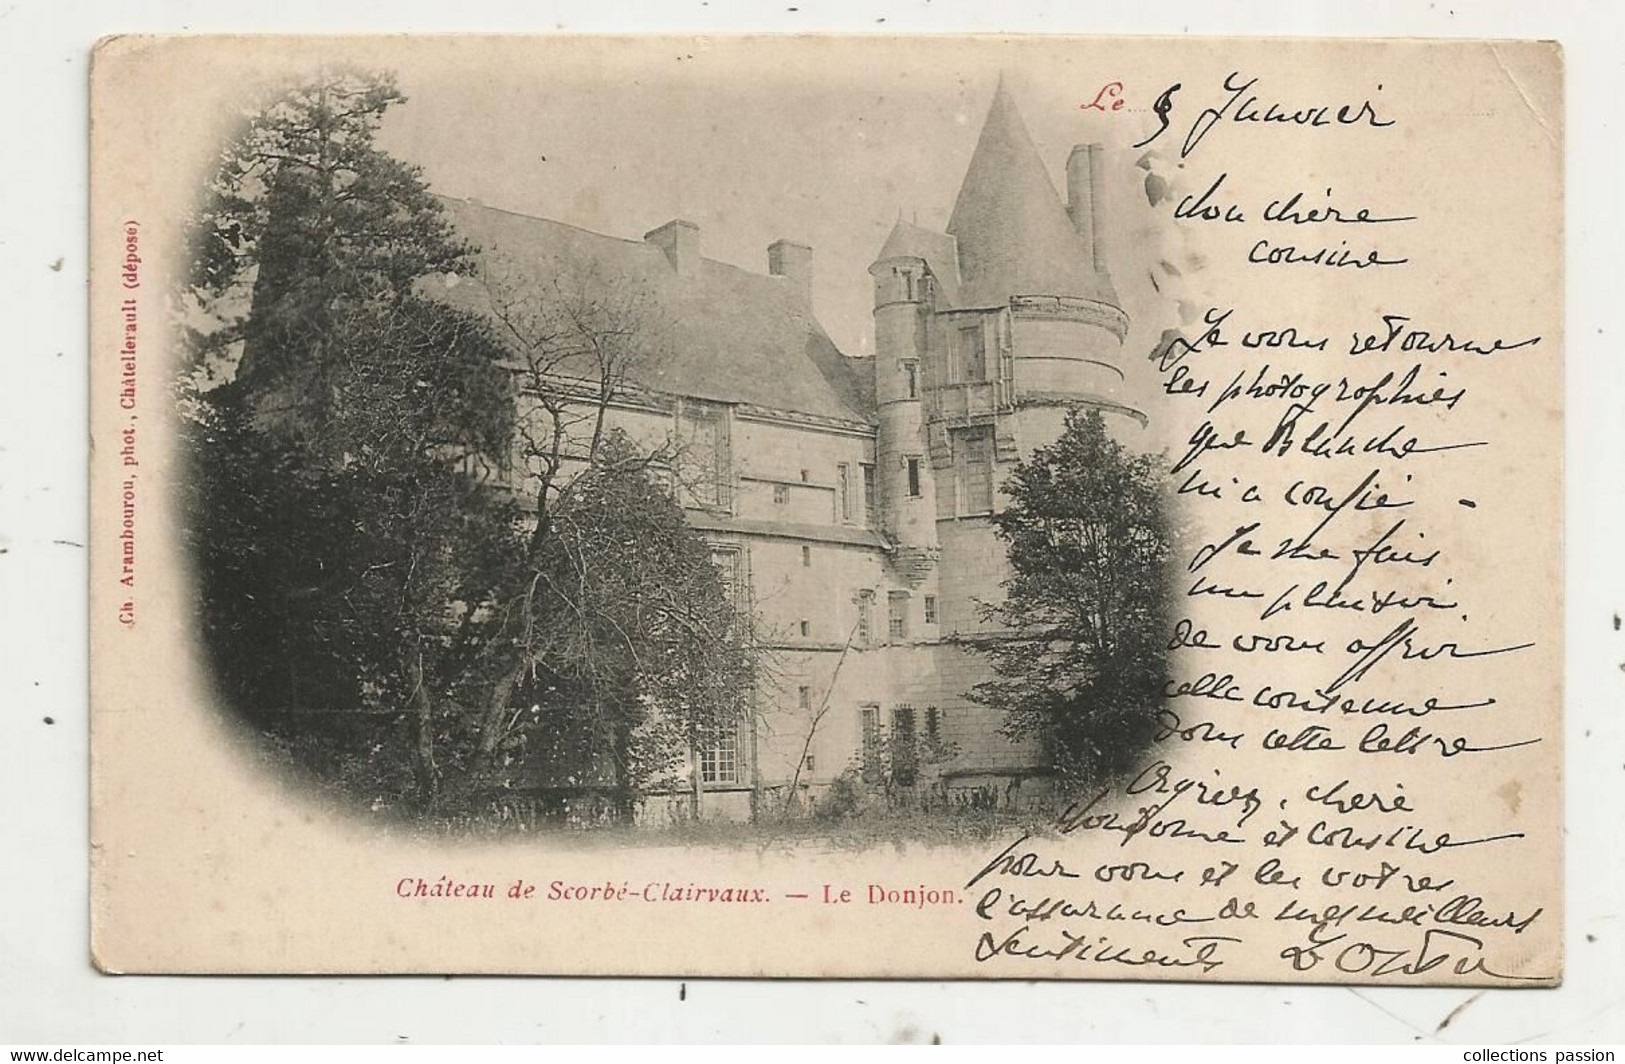 Le 8 Janvier
chère
cousine
Je vous retourne
les photographies
que Blanche
m'a confié -
Je me fais
un plaisir
de vous offrir
cette
dans cette lettre
Agréez, chère
et cousine
pour vous et les vôtres
l'assurance de mes meilleurs
sentiments
Château de Scorbé-Clairvaux. — Le Donjon.
Ch. Arambourou, phot., Châtellerault (déposé)
http://www.delcampe.net
collections passion